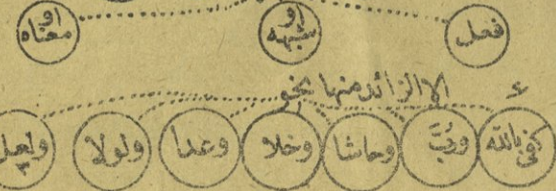 فعل أو شبهه أو معناه
إلا الزائد منها نحو
كفى بالله ورُبَّ وحاشا وخلا وعدا ولولا ولعل